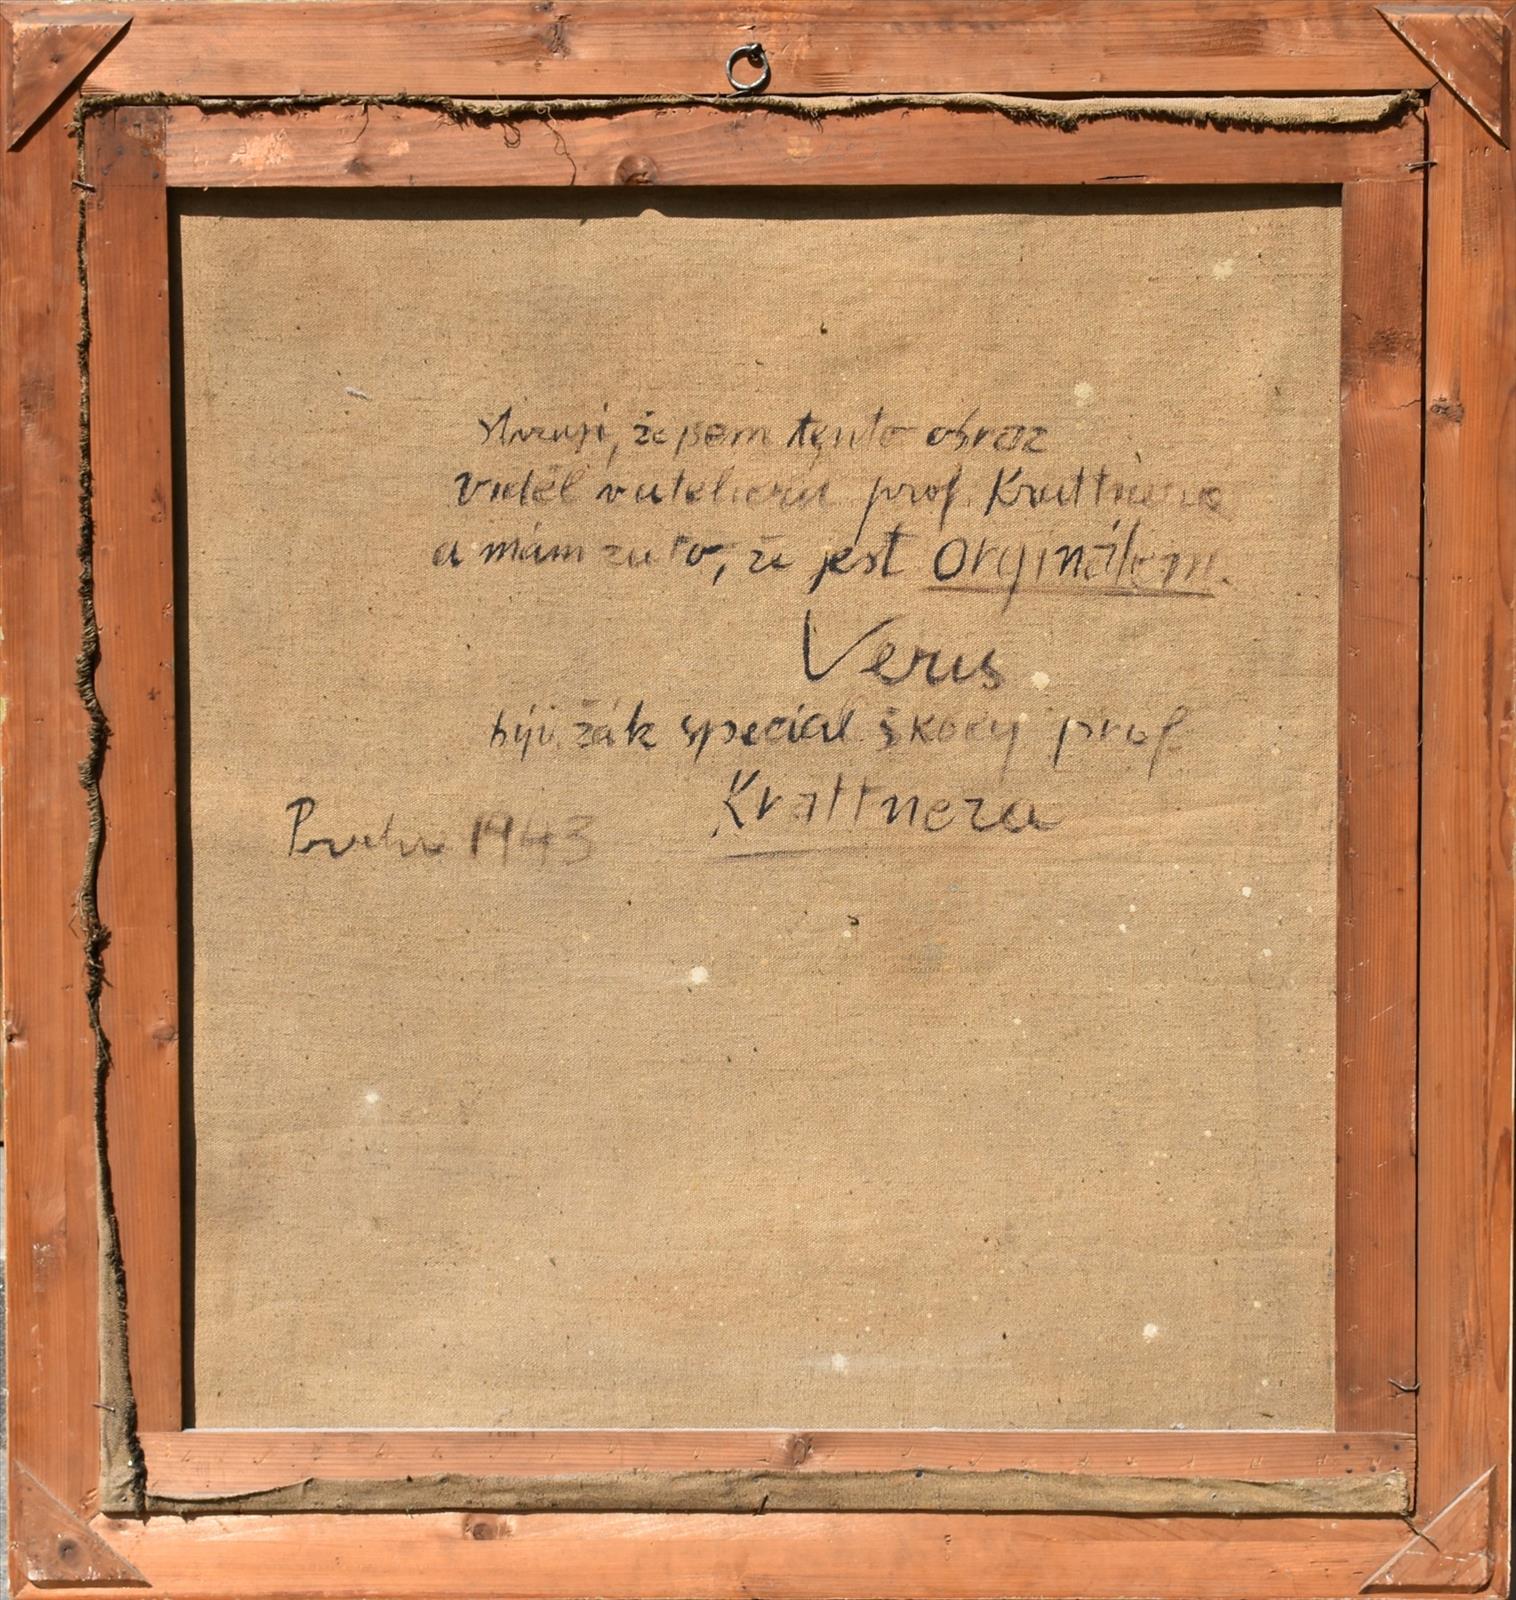 stvruji, že jsem tento obraz
viděl v atelieru prof. Krattnera
a mám za to, že jest orginálem.
Verus
býv. žák special. školy prof
Krattnera
Praha 1943